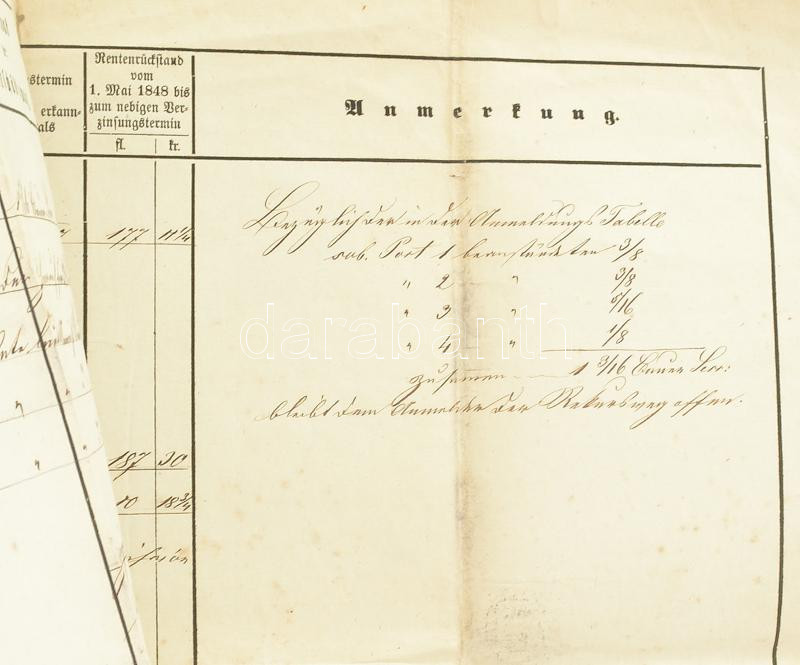 stermin
erkann-
als
Rentenrückstand
vom
1. Mai 1848 bis
zum nebigen Ver-
zinsungstermin
fl. kr.
Anmerkung.
177 11 1/4
187 30
10 18 3/4
Bezüglich der in der Anmeldungs Tabelle
sub. Post 1 beanständeten 3/8
" 2 " 3/8
" 3 " 5/16
" 4 " 1/8
zusammen 1 3/16 Bauer
bleibt dem Anmelder der Rekursweg offen.
darabanth